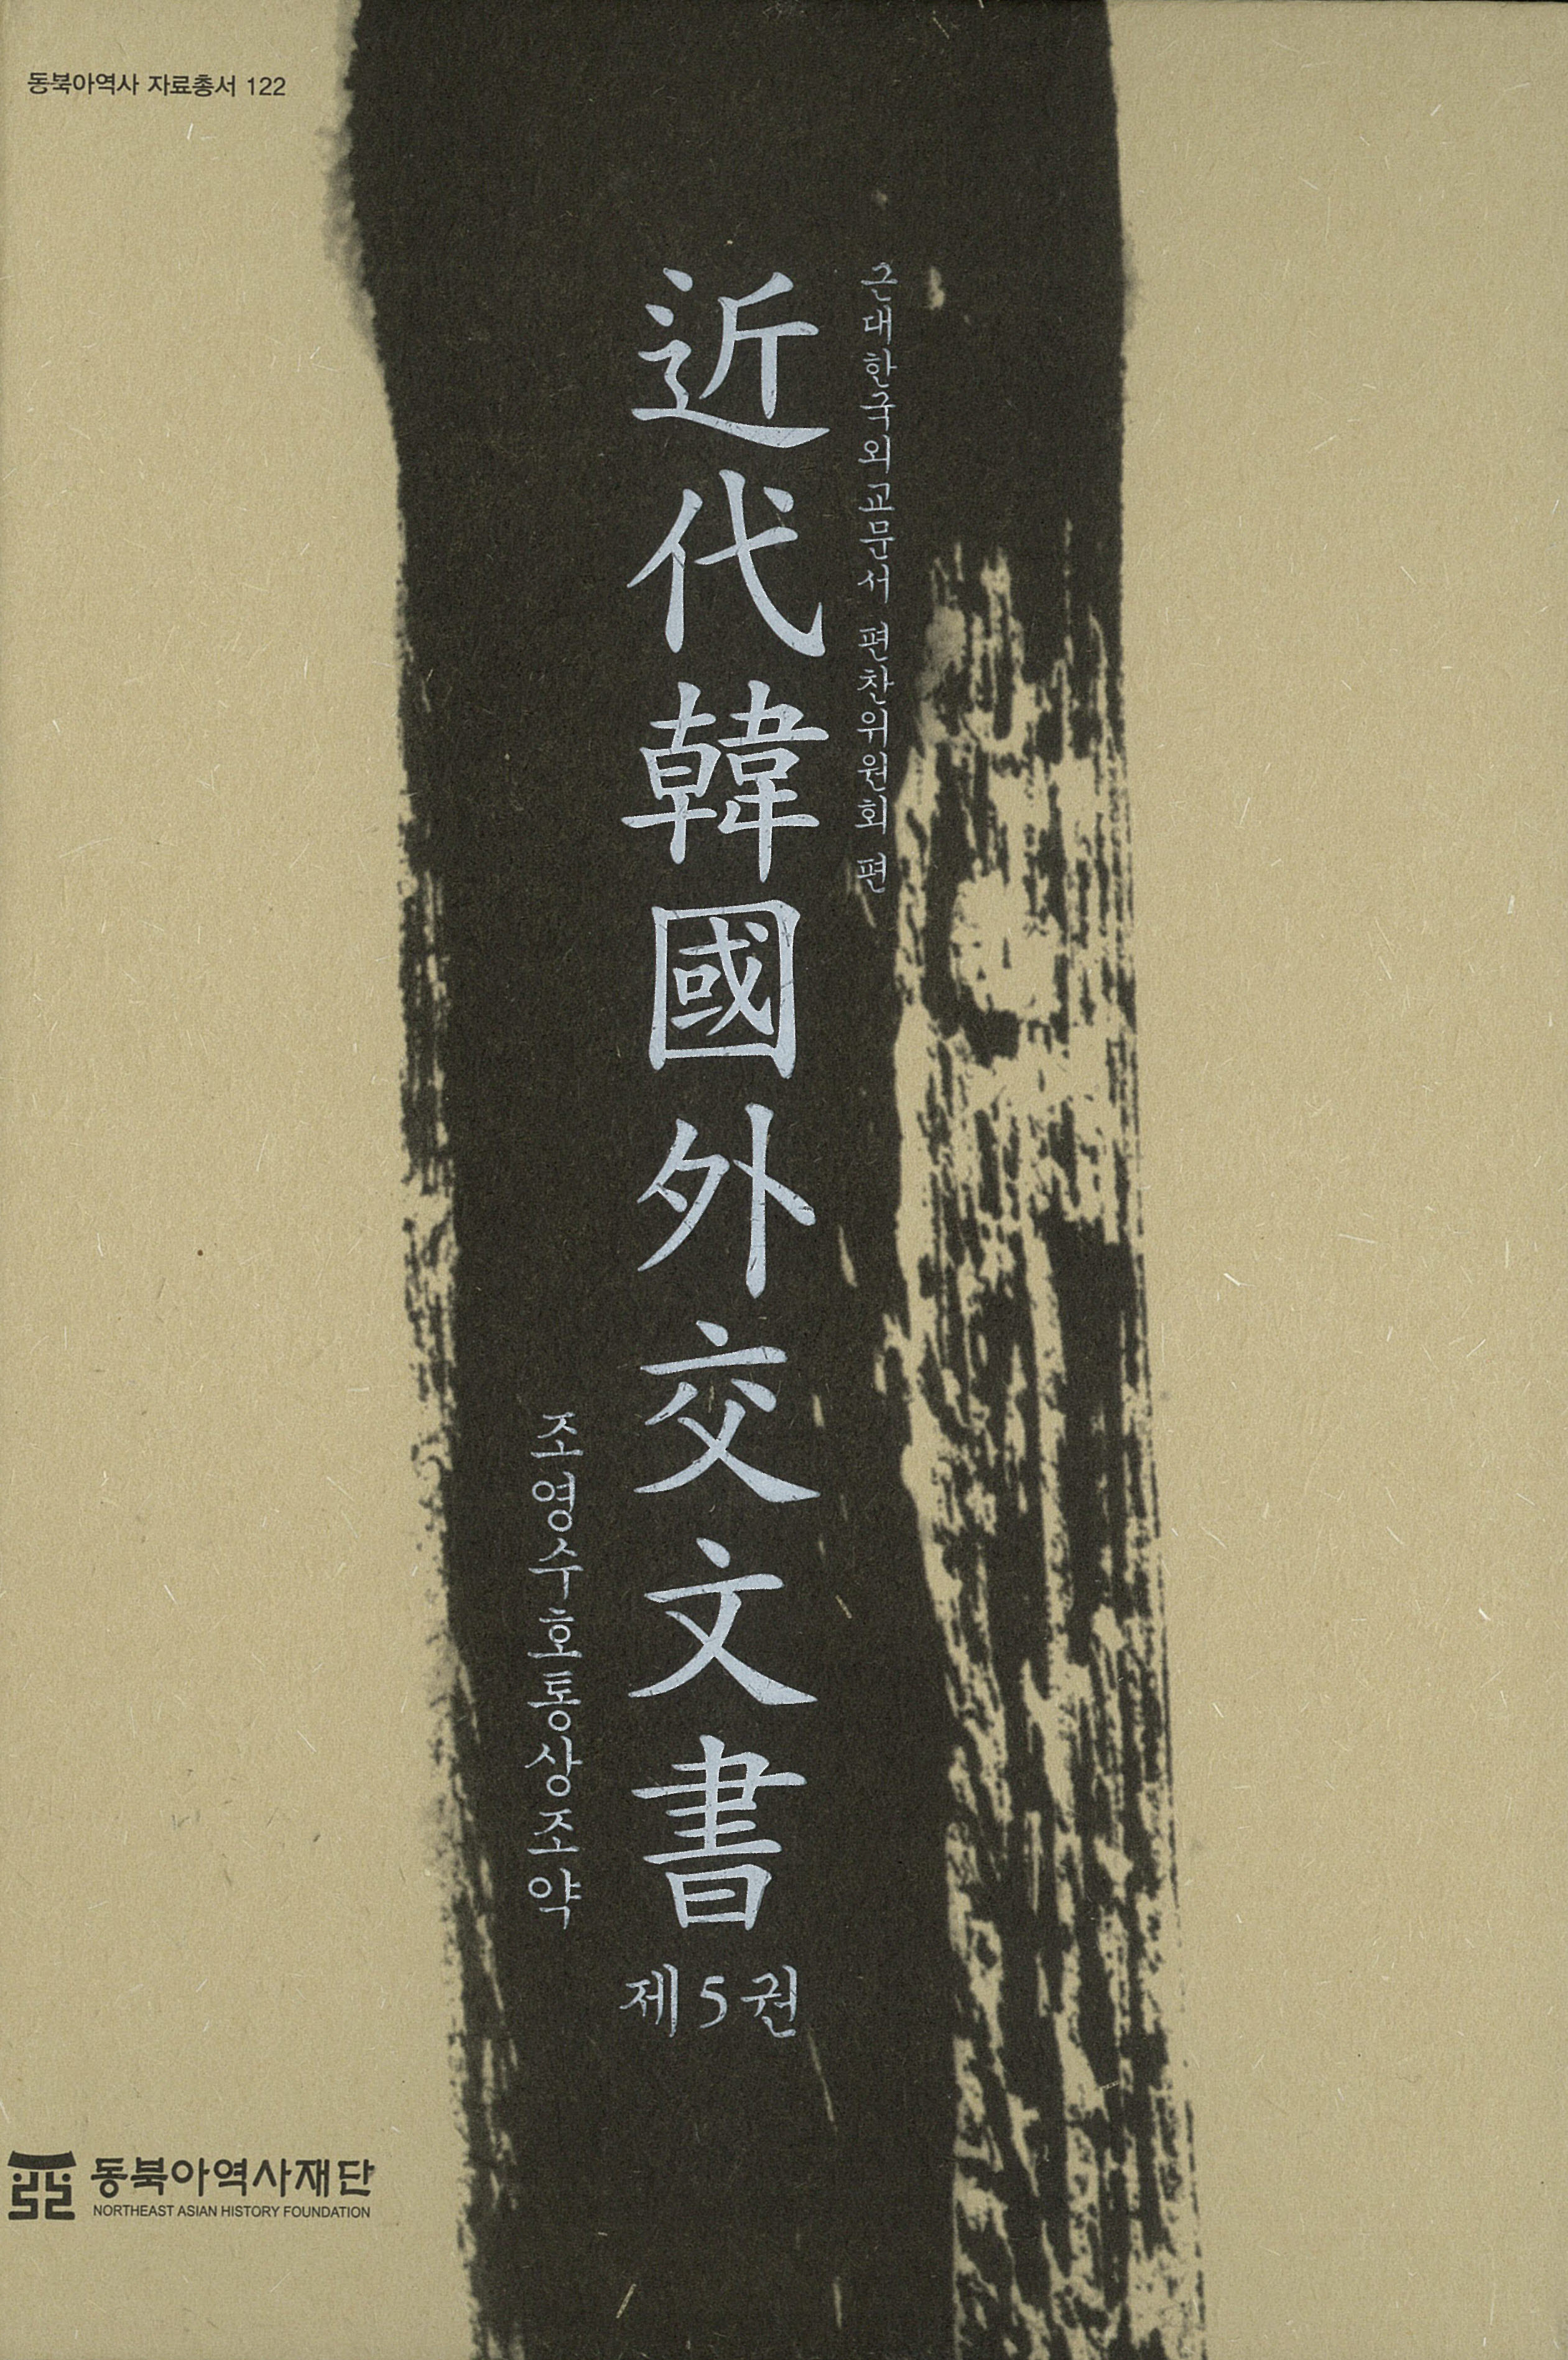 동북아역사 자료총서 122
근대한국외교문서 편찬위원회 편
近代韓國外交文書
제5권
조영수호통상조약
동북아역사재단
NORTHEAST ASIAN HISTORY FOUNDATION